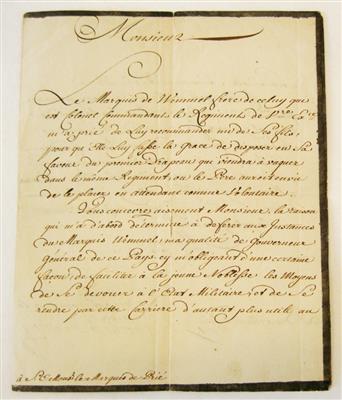 Monsieur
Le Marquis de Wemmel frere de celuy que
est Colonel Commandant le Regiment de
m'a prié de Luy recommander un de Ses fils,
pour qu'Elle luy fasse la grace de disposer en Sa
faveur du premier Drapeau que viendra à vaquer
dans le même Regiment, ou le Pere auroit envie
de le placer en attendant comme Volontaire.
Vous concevres aisement Monsieur la raison
qui m'a d'abord determiné à deferer aux Instances
du Marquis Wemmel, ma qualité de Gouverneur
General de ce Pays cy m'obligeant d'une certaine
façon, de faciliter à la jeune Noblesse les Moyens
de Se devouer à l'Etat Militaire, et de Se
rendre par cette Carriere d'autant plus utile au
à Mons. le Marquis de Prié